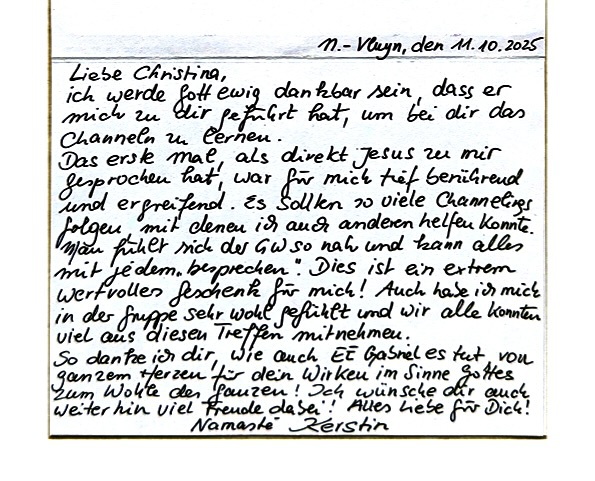 N.-Vluyn, den 11.10.2025
Liebe Christina,
ich werde Gott ewig dankbar sein, dass er
mich zu dir geführt hat, um bei dir das
Channeln zu lernen.
Das erste Mal, als direkt Jesus zu mir
gesprochen hat, war für mich tief berührend
und ergreifend. Es sollten so viele Channelings
folgen, mit denen ich auch anderen helfen konnte.
Man fühlt sich der GW so nah und kann alles
mit jedem "besprechen". Dies ist ein extrem
wertvolles Geschenk für mich! Auch habe ich mich
in der Gruppe sehr wohl gefühlt und wir alle konnten
viel aus diesen Treffen mitnehmen.
So danke ich dir, wie auch EE Gabriel es tut, von
ganzem Herzen für dein Wirken im Sinne Gottes
zum Wohle des Ganzen! Ich wünsche dir auch
weiterhin viel Freude dabei! Alles Liebe für Dich!
Namasté Kerstin